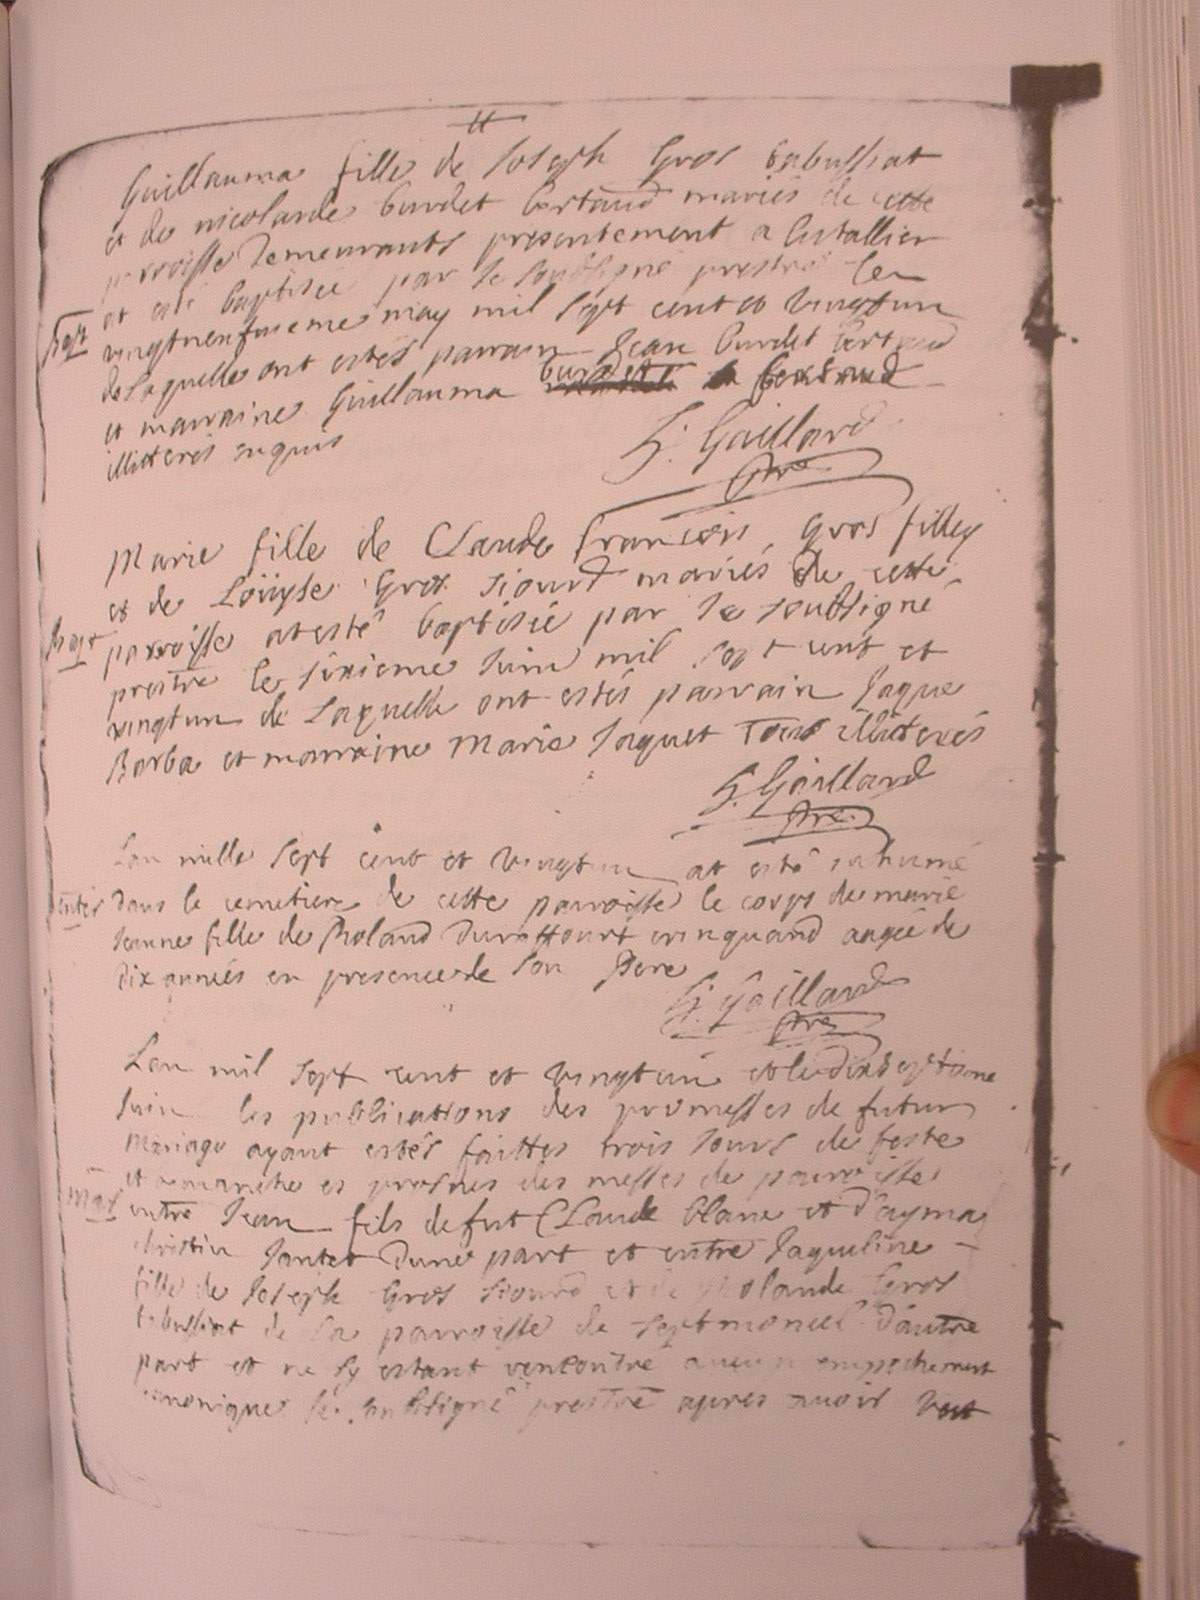 Guillauma fille de Joseph Gros tabussiat
et de nicolarde burdet bertaud mariés de cette
parroisse demeurants presentement a Cutallier
at esté baptisée par le soubsigné prestre le
Bapt vingtneufuieme may mil sept cent et vingtun
de laquelle ont estés parrain Jean burdet bertaud
et marraine Guillauma burdet bertaud
illiterés enquis
Gaillard
ptre
Marie fille de Claude francois Gros filley
et de Loüyse Gros siourd mariés de cette
Bapt parroisse at esté baptisée par le soubsigné
prestre le sixieme Juin mil sept cent et
vingtun de laquelle ont estés parrain Jaque
Barba et marraine Marie Jaquet Tous illiterés
Gaillard
ptre
Lan mille sept cent et vingtun at esté inhumé
enter dans le cemetiere de cette parroisse le corps de marie
Jeanne fille de Roland duraffourt crinquand augée de
dix années en presence de son Pere
Gaillard
ptre
Lan mil sept cent et vingtun et le dixseptieme
Juin les publications des promesses de futur
Mariage ayant estés faittes trois Jours de feste
et dimanche es prosnes des messes de parroisse
Mar entre Jean fils de fut Claude blanc et d'ayma
christin Jantet dune part et entre Jaqueline
fille de Joseph Gros siourd et de Rolande Gros
tabussiat de la parroisse de septmoncel d'autre
part et ne sy estant rencontré aucun empechement
canonique le soubsigné prestre apres auoir